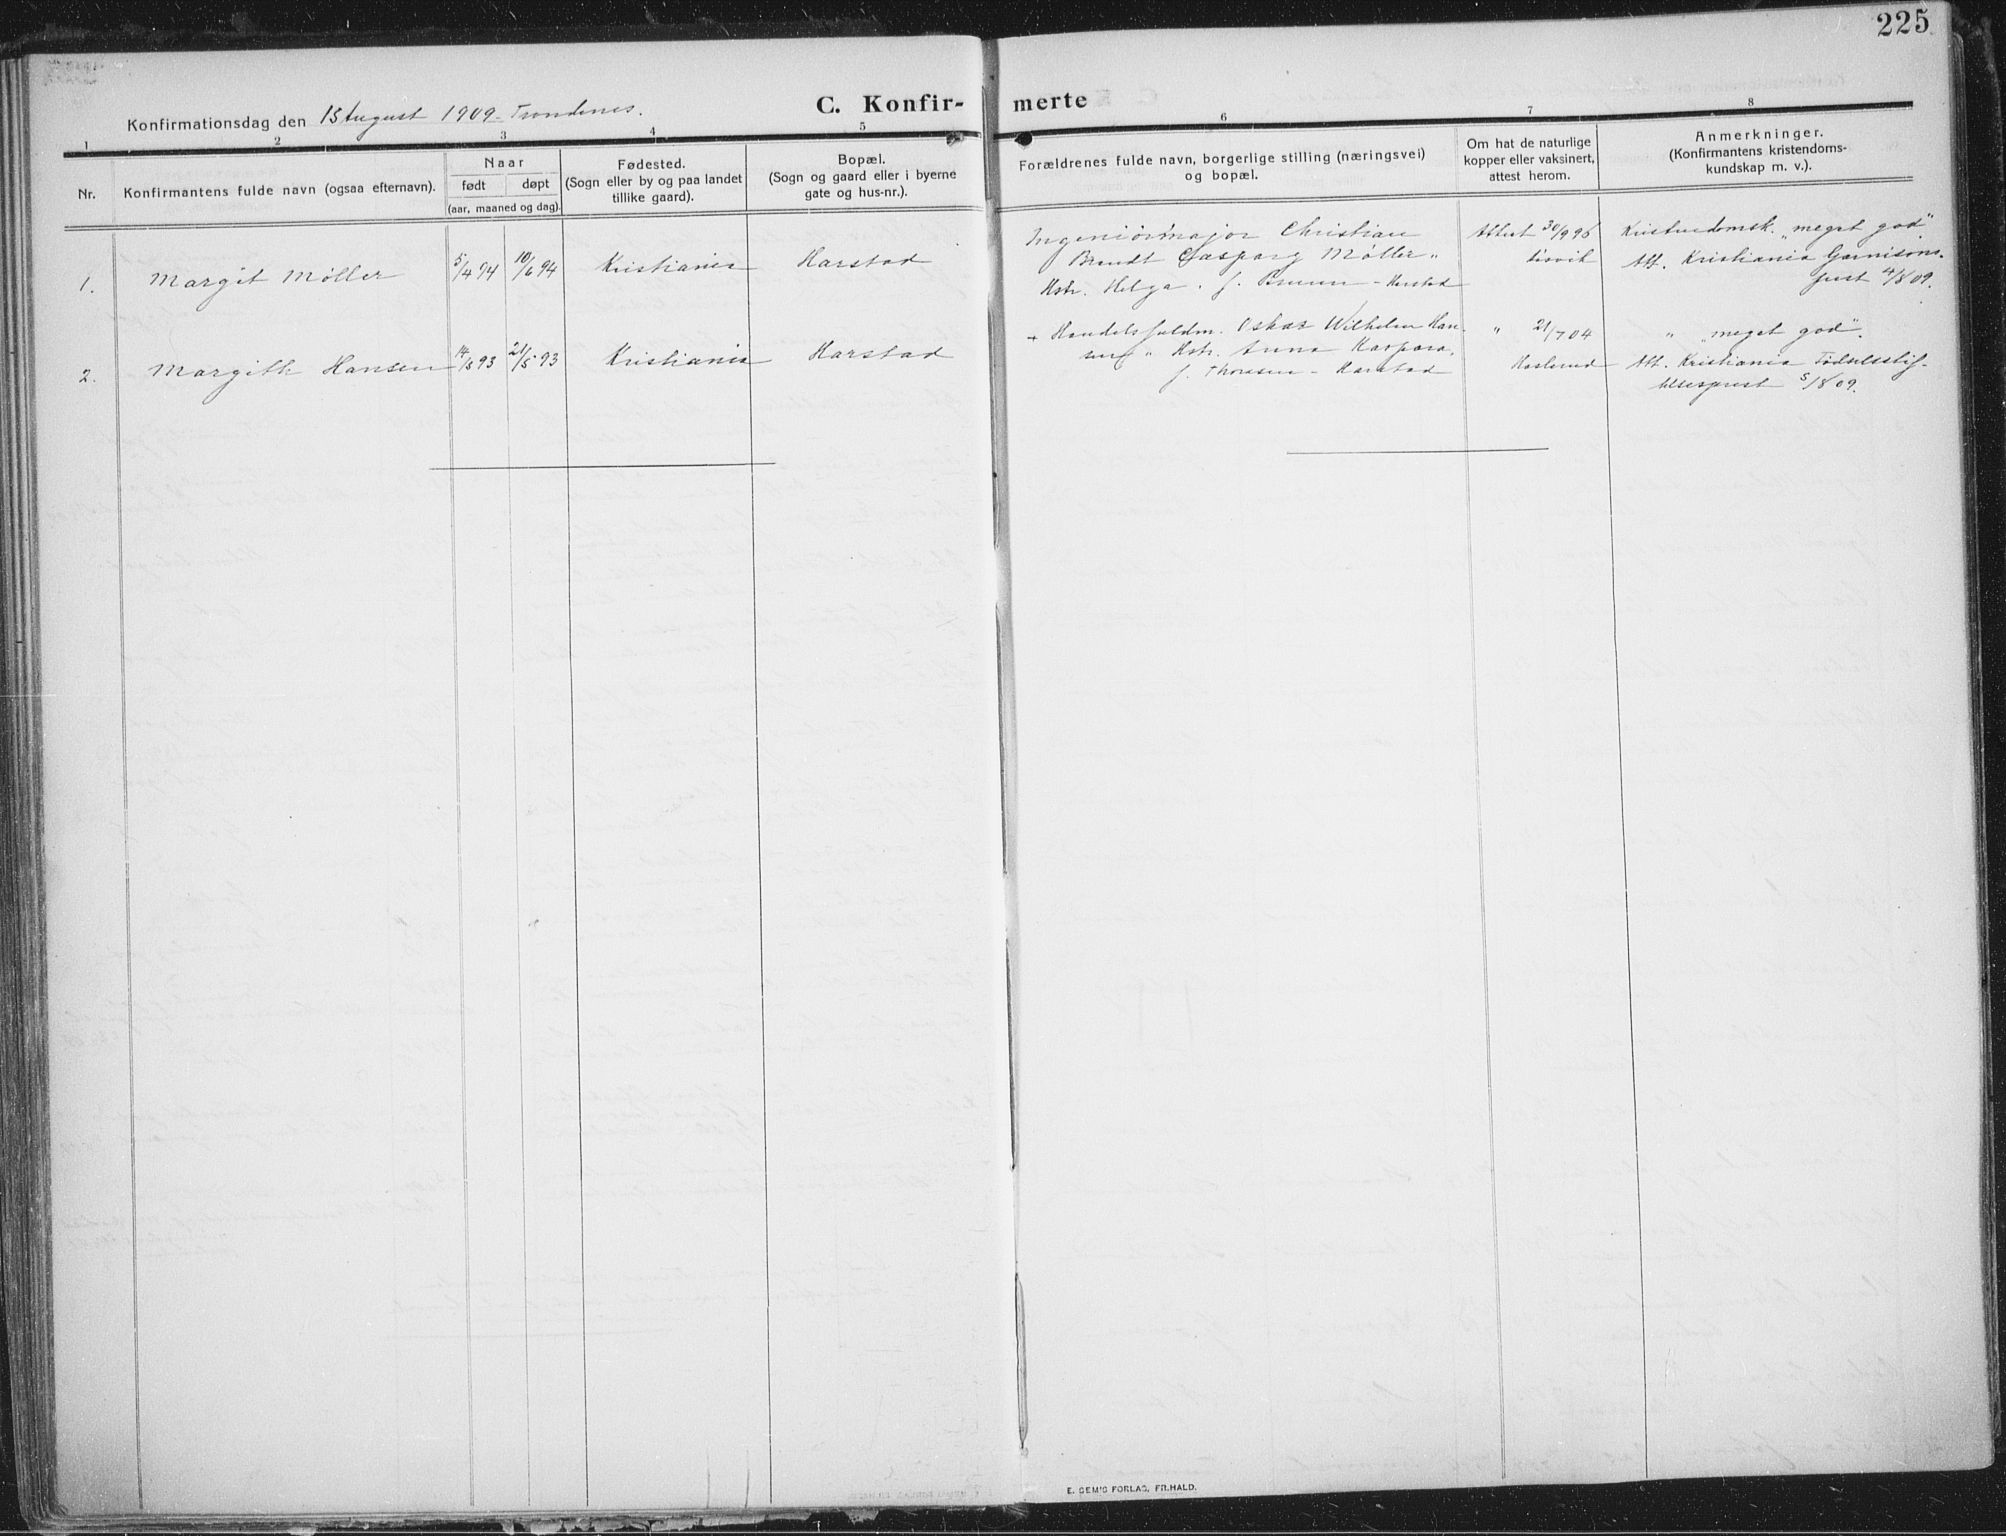 225
Konfirmationsdag den 15 August 1909 - Trondenes.
C. Konfir- merte
1 2 3 4 5 6 7 8
Nr.
Konfirmantens fulde navn (ogsaa efternavn).
Naar
født døpt
(aar, maaned og dag).
Fødested.
(Sogn eller by og paa landet
tillike gaard).
Bopæl.
(Sogn og gaard eller i byerne
gate og hus-nr.).
Forældrenes fulde navn, borgerlige stilling (næringsvei)
og bopæl.
Om hat de naturlige
kopper eller vaksinert,
attest herom.
Anmerkninger.
(Konfirmantens kristendoms-
kundskap m. v.).
1. Margit Møller 5/4 94 10/6 94 Kristiania Harstad
Ingeniørmajor Christian
Berndt Caspary Møller "
Hstr. Helga f. - Harstad
Attest 30/9 96
Kristendomsk. „meget god".
Att. Kristiania Garnisons-
prest 4/8 09.
2. Margith Hansen 93 21/5 93 Kristiania Harstad
+ Handelsfuldm. Oskar Wilhelm Han-
sen " Hstr. Anna Kaspara,
f. Thoresen - Harstad
" 21/7 04
Haslerud
" „meget god".
Att. Kristiania Fødselsstif-
telsesprest 5/8 09.
E. SEM'S FORLAG, FR.HALD.